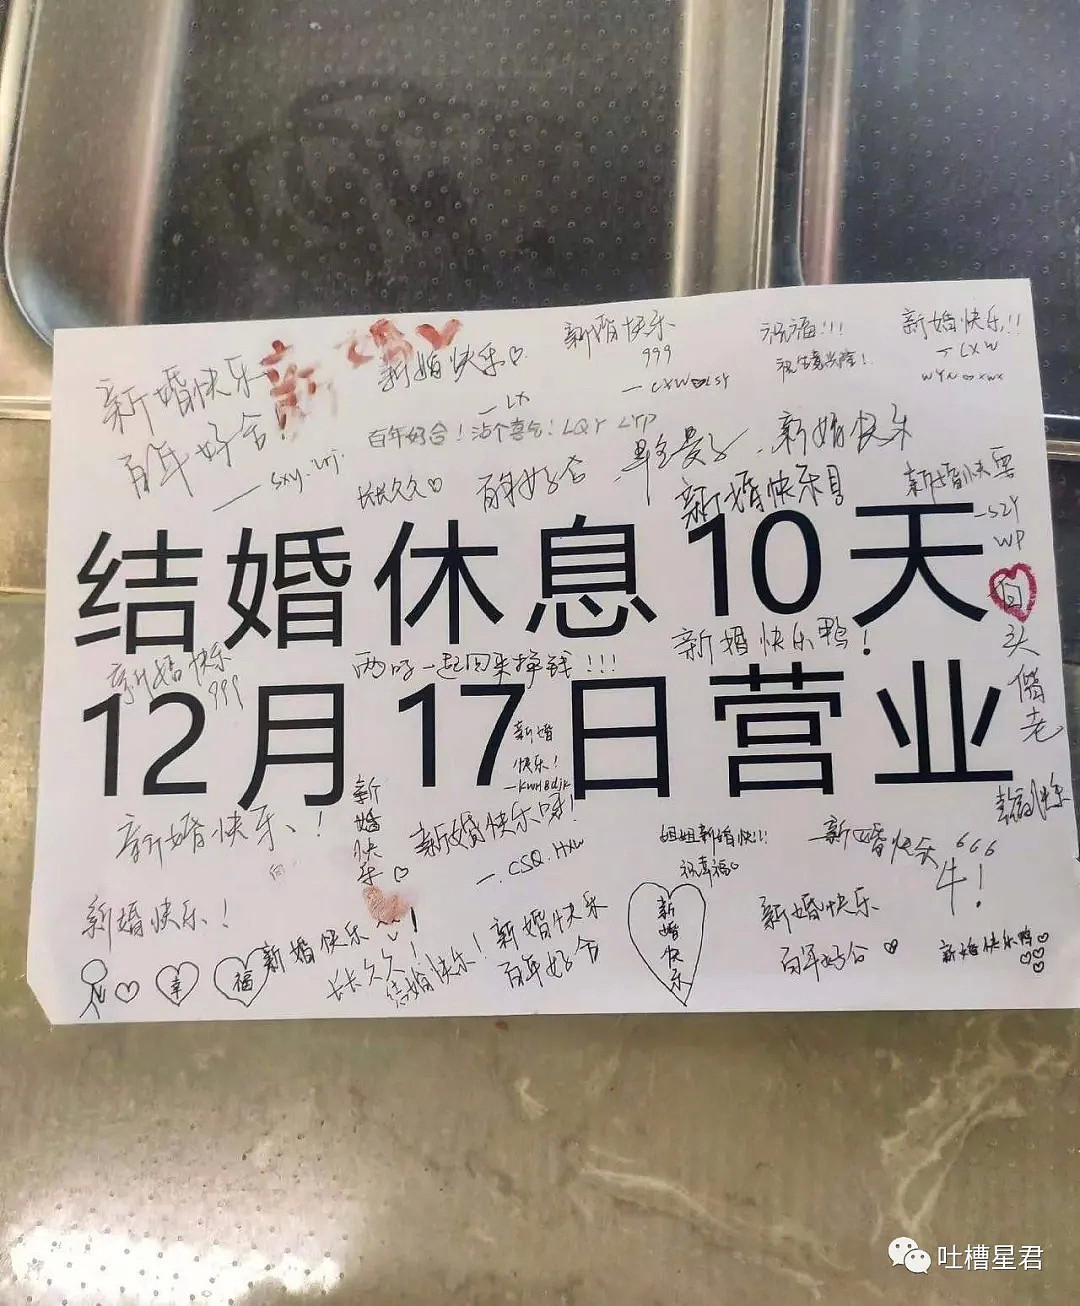 新婚快乐
百年好合!
新婚
新婚快乐
新婚快乐
999
—CXW LSY
祝福!!!
祝生意兴隆!
新婚快乐!!
LXW
—LX
百年好合!沾个喜气!LQY LYP
长长久久
百年好合
新婚快乐
新婚快乐
新婚快乐
—SZY
WP
结婚休息10天
白头偕老
新婚快乐
999
两口一起回来挣钱!!!
新婚快乐鸭!
12月17日营业
新婚
快乐!
新婚快乐!
新婚快乐
新婚快乐呀!
—CSQ.HXW
姐姐新婚快!!
祝幸福
新婚快乐
666
牛!
新婚快乐!
新婚快乐
百年好合
新婚快乐
新婚快乐
百年好合
新婚快乐鸭
幸
福
新婚快乐
长长久久!
结婚快乐!
吐槽星君